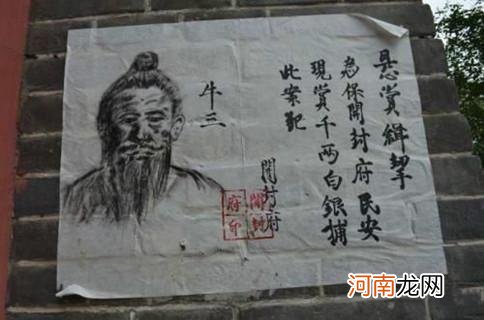 悬賞緝拏
為保開封府民安
現賞千两白銀捕
此案犯
開封府
牛三
開封
府印
河南龙网